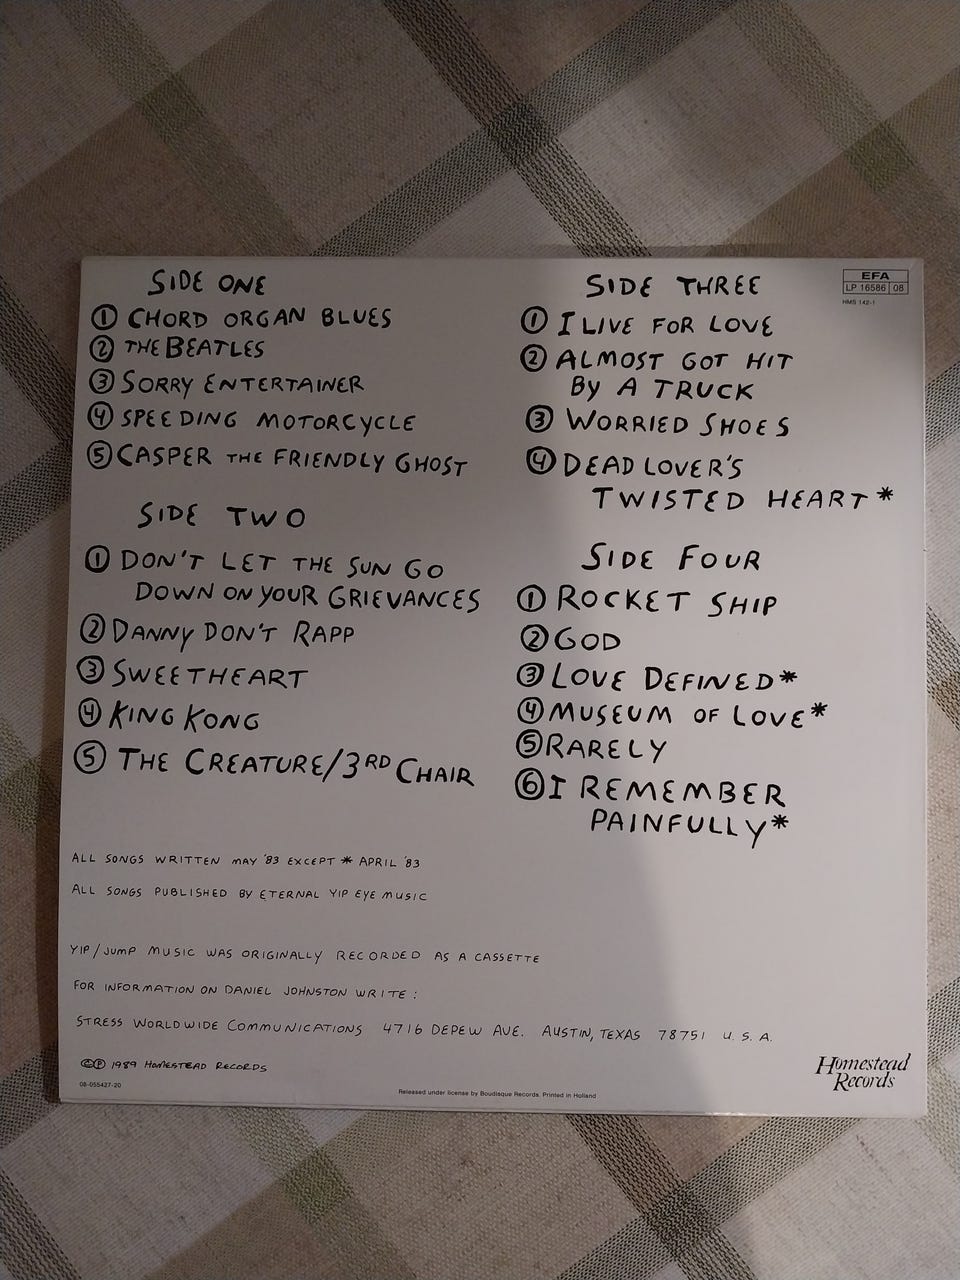 SIDE ONE
① CHORD ORGAN BLUES
② THE BEATLES
③ SORRY ENTERTAINER
④ SPEEDING MOTORCYCLE
⑤ CASPER THE FRIENDLY GHOST
SIDE TWO
① DON'T LET THE SUN GO
DOWN ON YOUR GRIEVANCES
② DANNY DON'T RAPP
③ SWEETHEART
④ KING KONG
⑤ THE CREATURE/3RD CHAIR
SIDE THREE
① I LIVE FOR LOVE
② ALMOST GOT HIT
BY A TRUCK
③ WORRIED SHOES
④ DEAD LOVER'S
TWISTED HEART*
SIDE FOUR
① ROCKET SHIP
② GOD
③ LOVE DEFINED*
④ MUSEUM OF LOVE*
⑤ RARELY
⑥ I REMEMBER
PAINFULLY*
EFA
LP 16586 08
HMS 142-1
ALL SONGS WRITTEN MAY '83 EXCEPT * APRIL '83
ALL SONGS PUBLISHED BY ETERNAL YIP EYE MUSIC
YIP/JUMP MUSIC WAS ORIGINALLY RECORDED AS A CASSETTE
FOR INFORMATION ON DANIEL JOHNSTON WRITE:
STRESS WORLDWIDE COMMUNICATIONS 4716 DEPEW AVE. AUSTIN, TEXAS 78751 U.S.A.
©℗ 1989 HOMESTEAD RECORDS
08-055427-20
Released under license by Boudisque Records. Printed in Holland
Homestead
Records